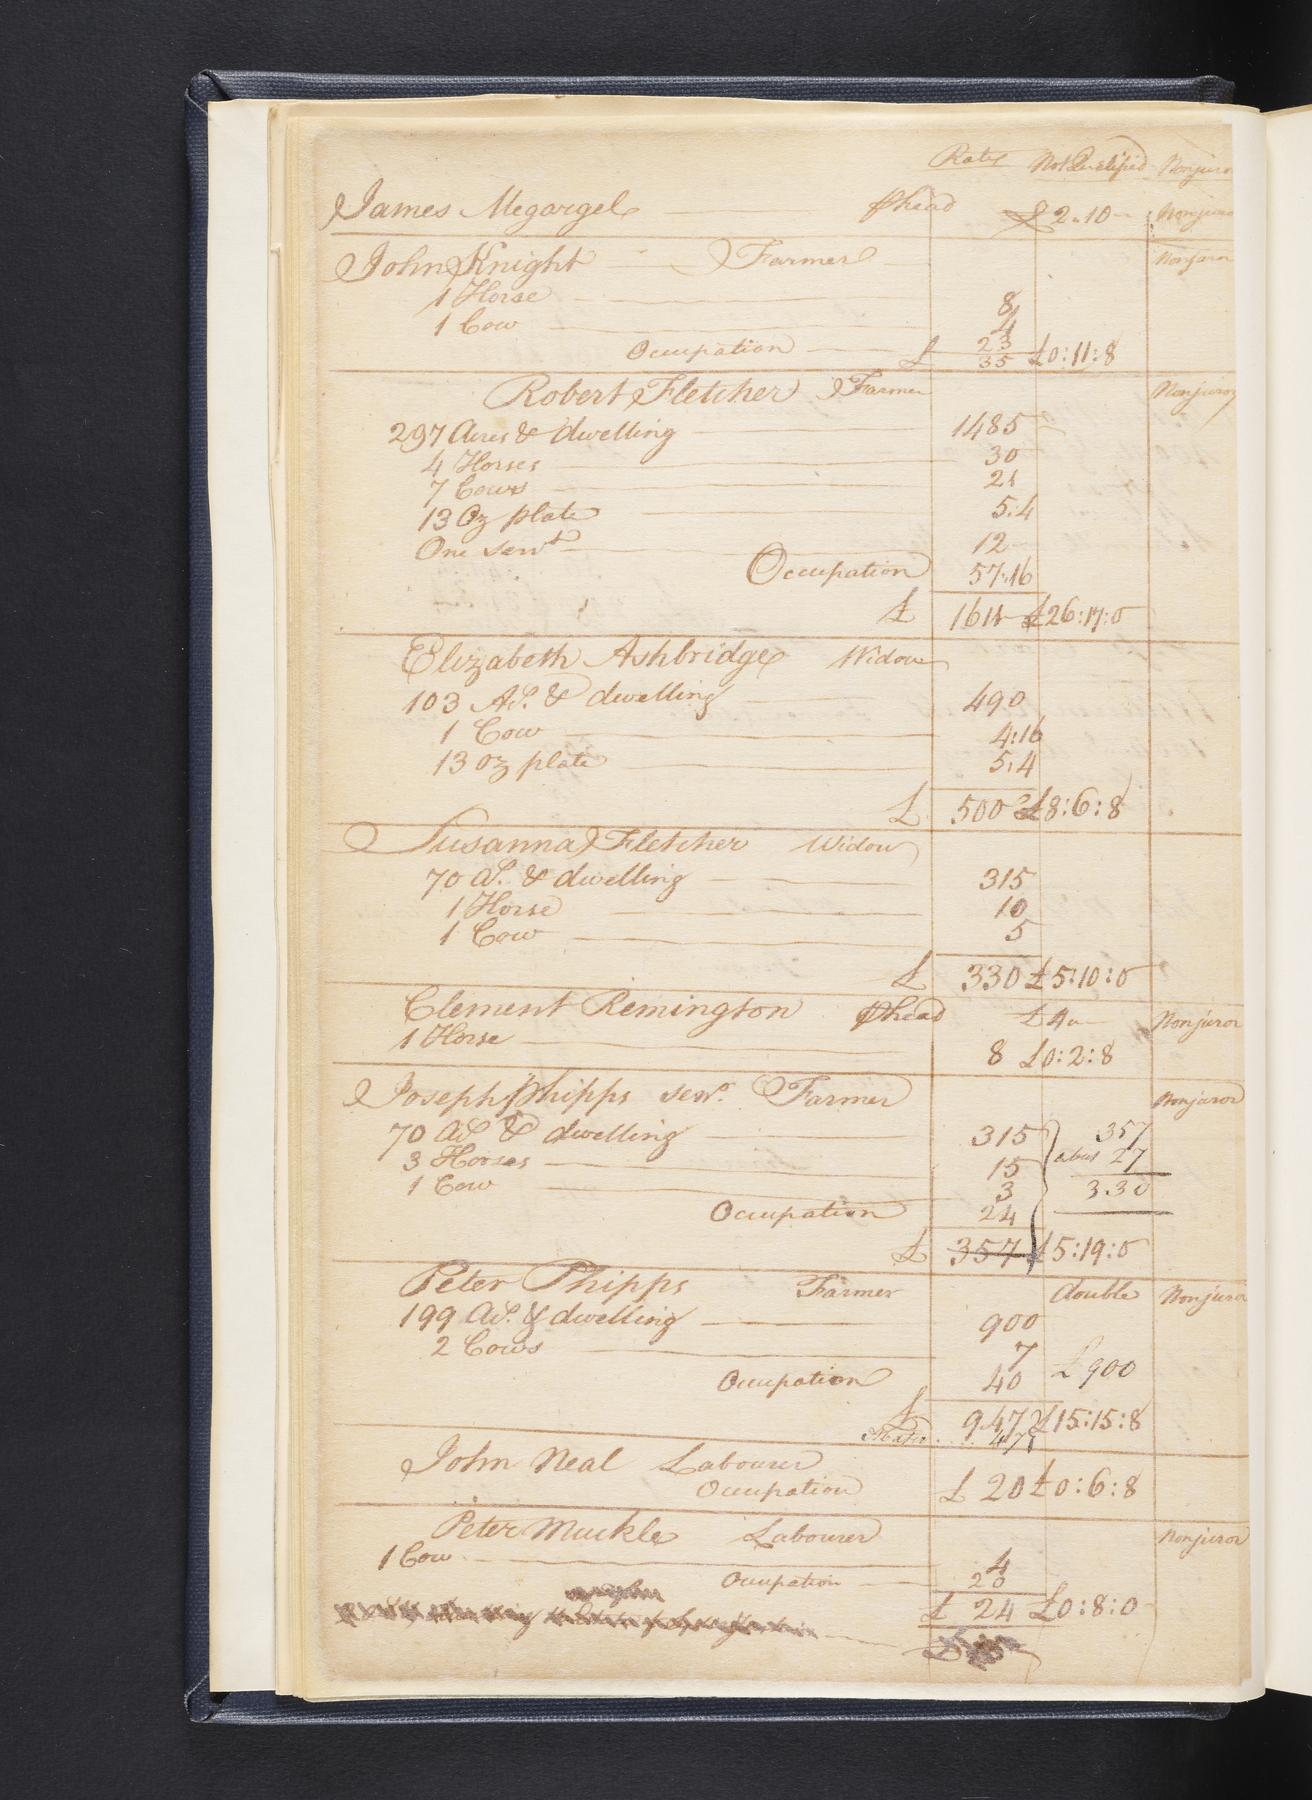 Rates Not Qualified Nonjuror
James Megargel phead £ 2..10 Nonjuror
John Knight Farmer Nonjuror
1 Horse 8
1 Cow 4
Occupation 23
£ 35 £0:11:8
Robert Fletcher Farmer Nonjuror
297 Acres & dwelling 1485
4 Horses 30
7 Cows 21
13 Oz plate 5.4
One servt 12
Occupation 57.16
£ 1611 £26:17:0
Elizabeth Ashbridge Widow
103 As. & dwelling 490
1 Cow 4:16
13 oz plate 5.4
£ 500 £8:6:8
Susanna Fletcher Widow
70 as. & dwelling 315
1 Horse 10
1 Cow 5
£ 330 £5:10:0
Clement Remington phead £4 Nonjuror
1 Horse 8 £0:2:8
Joseph Phipps senr. Farmer Nonjuror
70 as & dwelling 315 357
3 Horses 15 abat 27
1 Cow 3 3.30
Occupation 24
£ 357 £5:19:0
Peter Phipps Farmer double Nonjuror
199 as. & dwelling 900
2 Cows 7
Occupation 40 £900
£ 947 £15:15:8
John Neal Labourer
Occupation £ 20 £0:6:8
Peter Muckle Labourer Nonjuror
1 Cow 4
Occupation 20
£ 24 £0:8:0